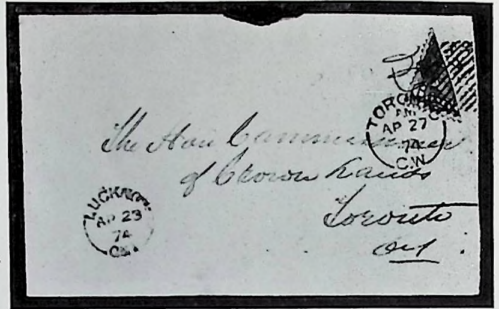 TORONTO
AP 27
74
C.W
The Hon Commissioner
of Crown Lands
Toronto
Ont
LUCKNOW
AP 23
74